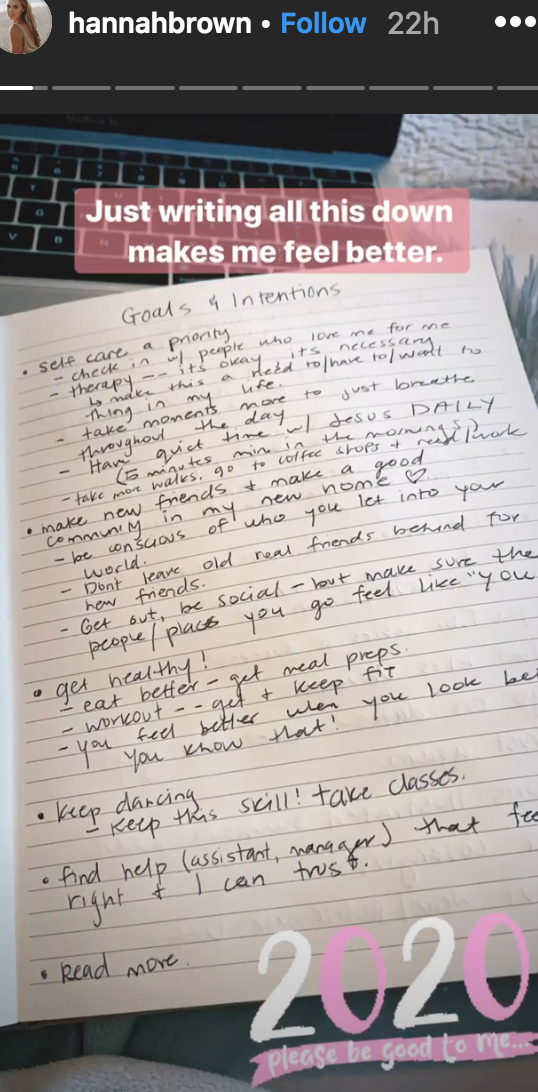 hannahbrown • Follow 22h
Just writing all this down
makes me feel better.
Goals & Intentions
• self care a priority
- check in w/ people who love me for me
- therapy -- its okay, its necessary
↳ make this a need to/have to/want to
thing in my life.
- take moments more to just breathe
throughout the day
- Have quiet time w/ Jesus DAILY
(5 minutes min in the mornings?)
- take more walks, go to coffee shops + read/work
• make new friends + make a good
community in my new home ♡
- be conscious of who you let into your
world.
- Dont leave old real friends behind for
new friends.
- Get out, be social - but make sure the
people/places you go feel like "you
• get healthy!
- eat better - get meal preps.
- workout -- get + keep fit
- you feel better when you look be
you know that!
• keep dancing
- keep this skill! take classes.
• find help (assistant, manager) that fee
right & I can trust.
• Read more.
2020
please be good to me...